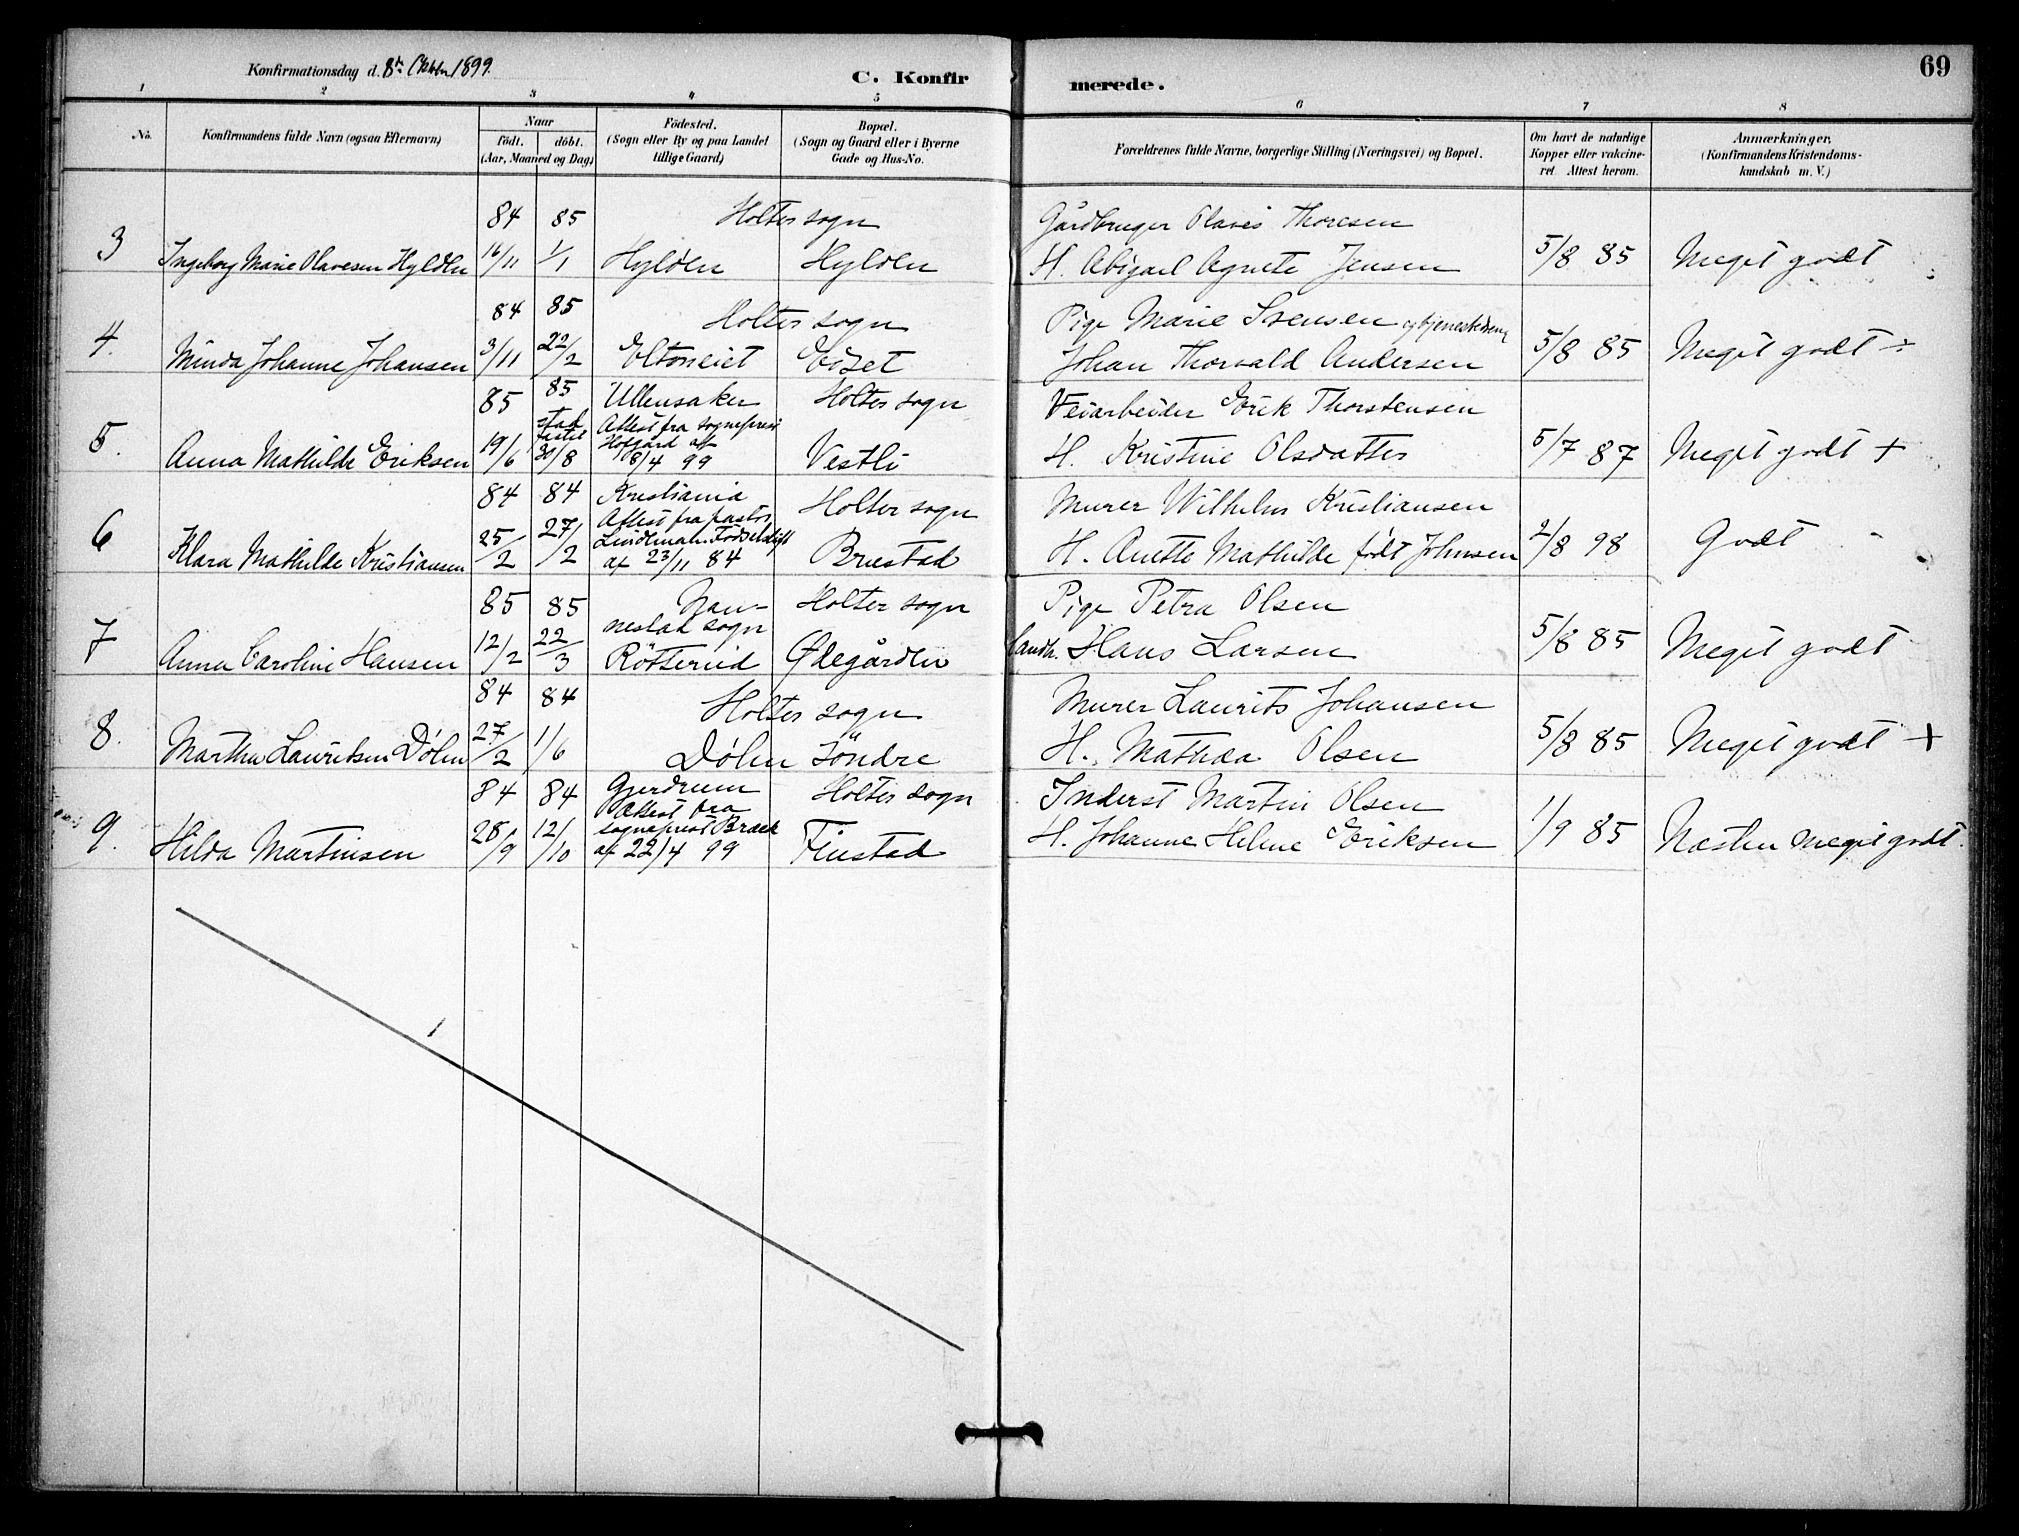 69
Konfirmationsdag d. 8de Oktober 1899.
C. Konfir
merede.
1 2 3 4 5 6 7 8
No.
Konfirmandens fulde Navn (ogsaa Efternavn)
Naar
født. døbt.
(Aar, Maaned og Dag)
Fødested.
(Sogn eller By og paa Landet
tillige Gaard)
Bopæl.
(Sogn og Gaard eller i Byerne
Gade og Hus-No.
Forældrenes fulde Navne, borgerlige Stilling (Næringsvei) og Bopæl.
Om havt de naturlige
Kopper eller vakcine-
ret. Attest herom.
Anmærkninger,
(Konfirmandens Kristendoms-
kundskab m. V.)
84 85 Holter sogn Gårdbruger Olaves Thoresen
3 Ingeborg Marie Olavesen Hylden 16/11 1/1 Hylden Hylden H. Abigael Agnete Jensen 5/8 85 Meget godt
84 85 Holter sogn Pige Marie Svensen og tjenestedreng
4. Minda Johanne Johansen 3/11 22/2 Eltoneiet Johan Thorvald Andersen 5/8 85 Meget godt ÷
85 85 Ullensaker Holter sogn Veiarbeider Erik Thorstensen
Attest fra sognepræst
Hofgård af
5. Anna Mathilde Eriksen 19/6 30/8 8/4 99 Vestli H. Kristine Olsdatter 5/7 87 Meget godt +
84 84 Kristiania Holter sogn Murer Wilhelm Kristiansen
Attest fra pastor
Lindeman. Fødselstift
6 Klara Mathilde Kristiansen 25/2 27/2 af 23/11 84 Brustad H. Anette Mathilde født Johnsen 2/8 98 Godt
85 85 Nan- Holter sogn Pige Petra Olsen
nestad sogn
7 Anna Caroline Hansen 12/2 22/3 Røtterud Ødegården Landh. Hans Larsen 5/8 85 Meget godt
84 84 Holter sogn Murer Laurits Johansen
8. Martha Lauritsen Dølen 27/2 1/6 Dølen søndre H. Mathea Olsen 5/8 85 Meget godt +
84 84 Gjerdrum Holter sogn Inderst Martin Olsen
Attest fra
sognepræst Bræck
9. Hilda Martinsen 28/9 12/10 af 22/4 99 Finstad H. Johanne Helene Eriksen 1/9 85 Næsten meget godt.